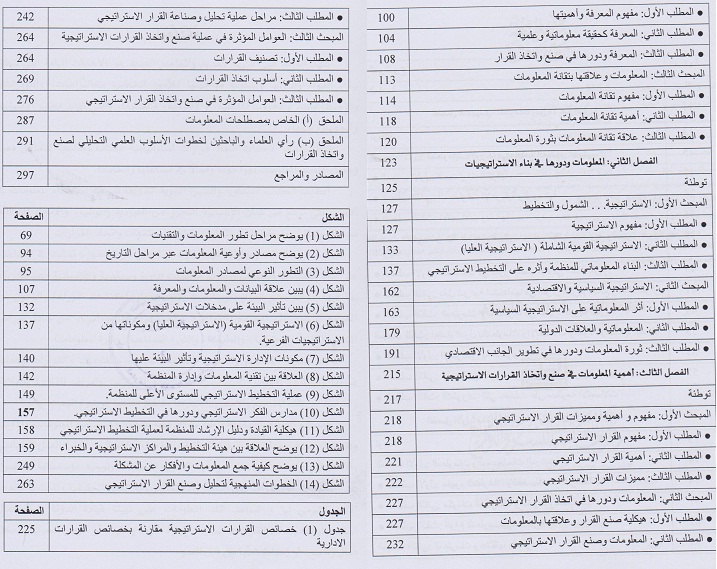 المطلب الأول: مفهوم المعرفة وأهميتها 100
المطلب الثاني: المعرفة كحقيقة معلوماتية وعلمية 104
المطلب الثالث: المعرفة ودورها في صنع واتخاذ القرار 108
المبحث الثالث: المعلومات وعلاقتها بتقانة المعلومات 113
المطلب الأول: مفهوم تقانة المعلومات 114
المطلب الثاني: أهمية تقانة المعلومات 118
المطلب الثالث: علاقة تقانة المعلومات بثورة المعلومات 120
الفصل الثاني: المعلومات ودورها في بناء الاستراتيجيات 123
توطئة 125
المبحث الأول: الاستراتيجية... الشمول والتخطيط 127
المطلب الأول: مفهوم الاستراتيجية 127
المطلب الثاني: الاستراتيجية القومية الشاملة ( الاستراتيجية العليا) 133
المطلب الثالث: البناء المعلوماتي للمنظمة وأثره على التخطيط الاستراتيجي 137
المبحث الثاني: الاستراتيجية السياسية والاقتصادية 162
المطلب الأول: أثر المعلوماتية على الاستراتيجية السياسية 163
المطلب الثاني: المعلوماتية والعلاقات الدولية 179
المطلب الثالث: ثورة المعلومات ودورها في تطوير الجانب الاقتصادي 191
الفصل الثالث: أهمية المعلومات في صنع واتخاذ القرارات الاستراتيجية 215
توطئة 217
المبحث الأول: مفهوم و أهمية ومميزات القرار الاستراتيجي 218
المطلب الأول: مفهوم القرار الاستراتيجي 218
المطلب الثاني: أهمية القرار الاستراتيجي 221
المطلب الثالث: مميزات القرار الاستراتيجي 222
المبحث الثاني: المعلومات ودورها في اتخاذ القرار الاستراتيجي 227
المطلب الأول: هيكلية صنع القرار وعلاقتها بالمعلومات 227
المطلب الثاني: المعلومات وصنع القرار الاستراتيجي 232
المطلب الثالث: مراحل عملية تحليل وصناعة القرار الاستراتيجي 242
المبحث الثالث: العوامل المؤثرة في عملية صنع واتخاذ القرارات الاستراتيجية 264
المطلب الأول: تصنيف القرارات 264
المطلب الثاني: أسلوب اتخاذ القرارات 269
المطلب الثالث: العوامل المؤثرة في صنع واتخاذ القرار الاستراتيجي 276
الملحق (أ) الخاص بمصطلحات المعلومات 287
الملحق (ب) رأي العلماء والباحثين لخطوات الأسلوب العلمي التحليلي لصنع 291
واتخاذ القرارات
المصادر والمراجع 297
الشكل الصفحة
الشكل (1) يوضح مراحل تطور المعلومات والتقنيات 69
الشكل (2) يوضح مصادر وأوعية المعلومات عبر مراحل التاريخ 94
الشكل (3) التطور النوعي لمصادر المعلومات 95
الشكل (4) يبين علاقة البيانات والمعلومات والمعرفة 107
الشكل (5) يبين تأثير البيئة على مدخلات الاستراتيجية 132
الشكل (6) الاستراتيجية القومية (الاستراتيجية العليا) ومكوناتها من 137
الاستراتيجيات الفرعية.
الشكل (7) مكونات الإدارة الاستراتيجية وتأثير البيئة عليها 140
الشكل (8) العلاقة بين تقنية المعلومات وإدارة المنظمة 142
الشكل (9) عملية التخطيط الاستراتيجي للمستوى الأعلى للمنظمة. 149
الشكل (10) مدارس الفكر الاستراتيجي ودورها في التخطيط الاستراتيجي. 157
الشكل (11) هيكلية القيادة ودليل الإرشاد للمنظمة لعملية التخطيط الاستراتيجي 158
الشكل (12) يوضح العلاقة بين هيئة التخطيط والمراكز الاستراتيجية والخبراء 159
الشكل (13) يوضح كيفية جمع المعلومات والأفكار عن المشكلة 249
الشكل (14) الخطوات المنهجية لتحليل وصنع القرار الاستراتيجي 263
الجدول الصفحة
جدول (1) خصائص القرارات الاستراتيجية مقارنة بخصائص القرارات 225
الادارية